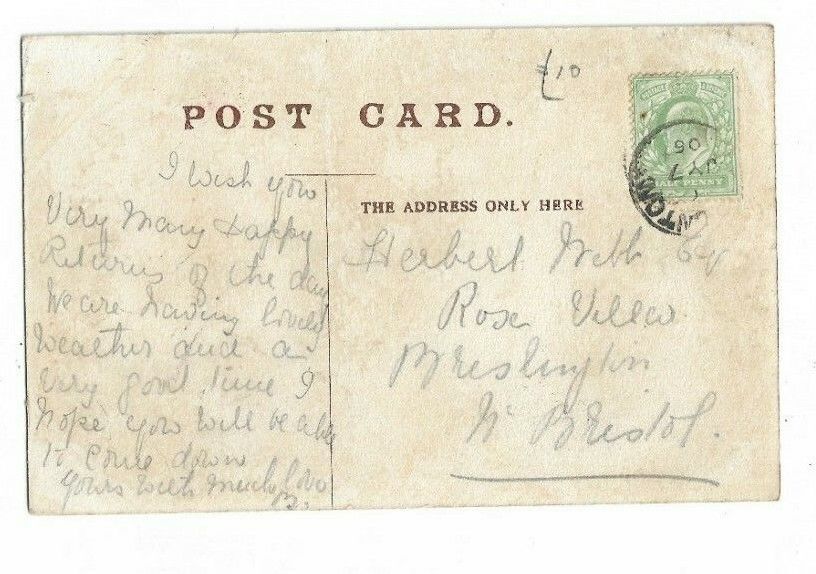 £10
POST CARD.
THE ADDRESS ONLY HERE
HALF PENNY
JY 7
06
I wish you
Very Many Happy
Returns of the day
We are having lovely
Weather and a
Very good time I
hope you will be able
to come down
yours with much love
B.
Herbert Webb Esq
Rose Villa
Brislington
Nr Bristol.